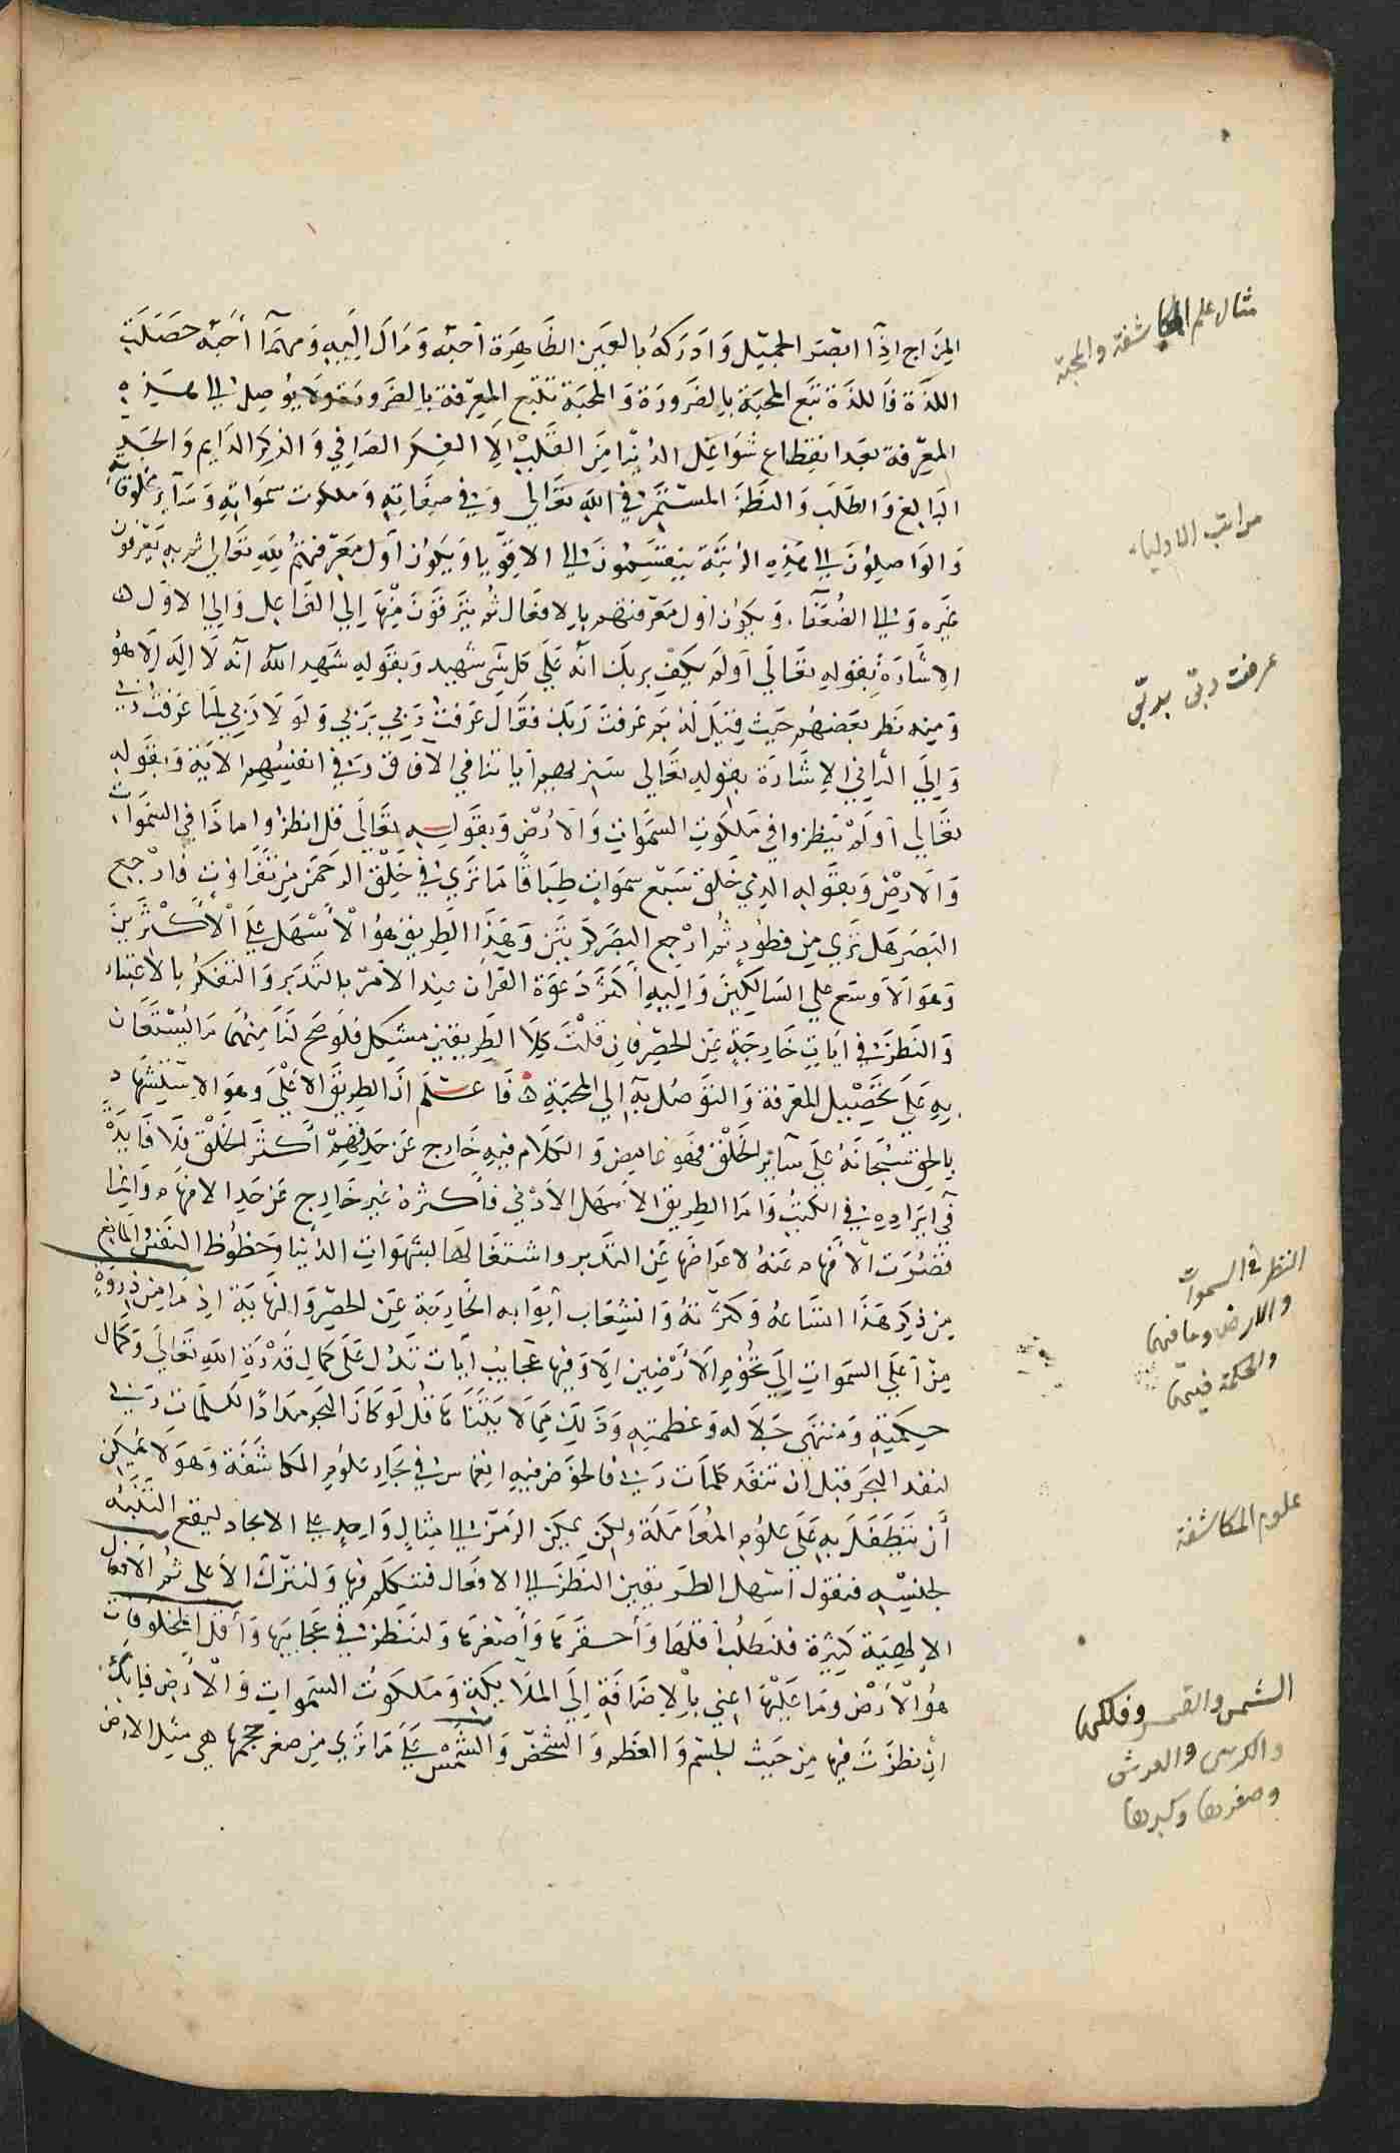 المزاج اذا ابصر الجميل وادركه بالعين الظاهرة احبه ومال اليه ومهما احبه حصلت
اللذة فاللذة تتبع المحبة بالضرورة والمحبة تتبع المعرفة بالضرورة ولا يوصل الي هذه
المعرفة بعد انقطاع شواغل الدنيا من القلب الا الفكر الصافي والذكر الدايم والجد
البالغ والطلب والنظر المستمر في الله تعالي وفي صفاته وملكوت سمواته وساير مخلوقاته
والواصلون الي هذه الرتبة ينقسمون الي الاقويا ويكون اول معرفتهم لله تعالي ثم به يعرفون
غيره والي الضعفا ويكون اول معرفتهم بالافعال ثم يترقون منها الي الفاعل والي الاول
الاشارة بقوله تعالي اولم يكف بربك انه علي كل شي شهيد وبقوله شهد الله انه لا اله الا هو
ومنه نظر بعضهم حيث قيل له بم عرفت ربك فقال عرفت ربي بربي ولولا ربي لما عرفت ربي
والي الثاني الاشارة بقوله تعالي سنريهم اياتنا في الآفاق وفي انفسهم الاية وبقوله
تعالي اولم ينظروا في ملكوت السموات والارض وبقوله تعالي قل انظروا ماذا في السموات
والارض وبقوله الذي خلق سبع سموات طباقا ما تري في خلق الرحمن من تفاوت فارجع
البصر هل تري من فطور ثم ارجع البصر كرتين وهذا الطريق هو الاسهل علي الاكثرين
وهو الاوسع علي السالكين واليه اكثر دعوة القران عند الامر بالتدبر والتفكر والاعتبار
والنظر في ايات خارجة عن الحصر فان قلت كلا الطريقين مشكل فلوضح لنا منهما ما يستعان
به علي تحصيل المعرفة والتوصل به الي المحبة فاعلم ان الطريق الاعلي وهو الاستشهاد
بالحق سبحانه علي ساير الخلق فهو غامض والكلام فيه خارج عن حد فهم اكثر الخلق فلا فايدة
في ايراده في الكتب واما الطريق الاسهل الادني فاكثره غير خارج عن حد الافهام وانما
قصرت الافهام عنه لاعراضها عن التدبر واشتغالها بشهوات الدنيا وحظوظ النفس المانع
من ذكر هذا اتساعه وكثرته وانشعاب ابوابه الخارجة عن الحصر والنهاية اذ ما من ذروة
من اعلي السموات الي تخوم الارضين الا وفيها عجايب ايات تدل علي كمال قدرة الله تعالي وكمال
حكمته ومنتهي جلاله وعظمته وذلك مما لا يتناها قل لو كان البحر مدادا لكلمات ربي
لنفد البحر قبل ان تنفد كلمات ربي فالخوض فيه انغماس في بحار علوم المكاشفة وهو لا يمكن
أن يتطفل به علي علوم المعاملة ولكن يمكن الرمز الي مثال واحد علي الايجاز ليقع التنبيه
لجنسه فنقول اسهل الطريقين النظر الي الافعال فنتكلم فيها ولنترك الاعلي ثم الافعال
الالهية كثيرة فلنطلب اقلها وأحقرها وأصغرها ولننظر في عجايبها وأقل المخلوقات
هو الارض وما عليها اعني بالاضافة الي الملايكة وملكوت السموات والارض فانك
ان نظرت فيها من حيث الجسم والعظم والشخص والشمس علي ما تري من صغر حجمها هي مثل الارض
مثال علم المكاشفة والمحبة
مراتب الاولياء
عرفت ربي بربي
النظر في السموات
والارض وما فيها
والحكمة فيها
علوم المكاشفة
الشمس والقمر وفلكها
والكرسي والعرش
وصغرها وكبرها